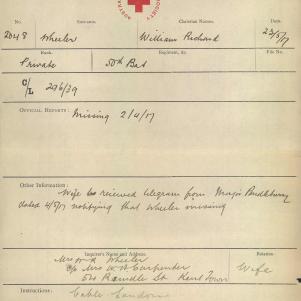 SOCIETY
No. Surname. Christian Names. Date.
2048 Wheeler William Richard 23/5/17
Rank. Regiment, &c. File No.
Private 50th Bat
C/L 296/39
OFFICIAL REPORTS: Missing 2/4/17
Other Information:
Wife has recieved telegram from Major
dated 4/5/17 notifying that Wheeler missing
Inquirer's Name and Address. Relation
Mrs Wheeler
c/o Mrs W. H. Carpenter Wife
Rundle St Kent Town
Instructions: Cable London